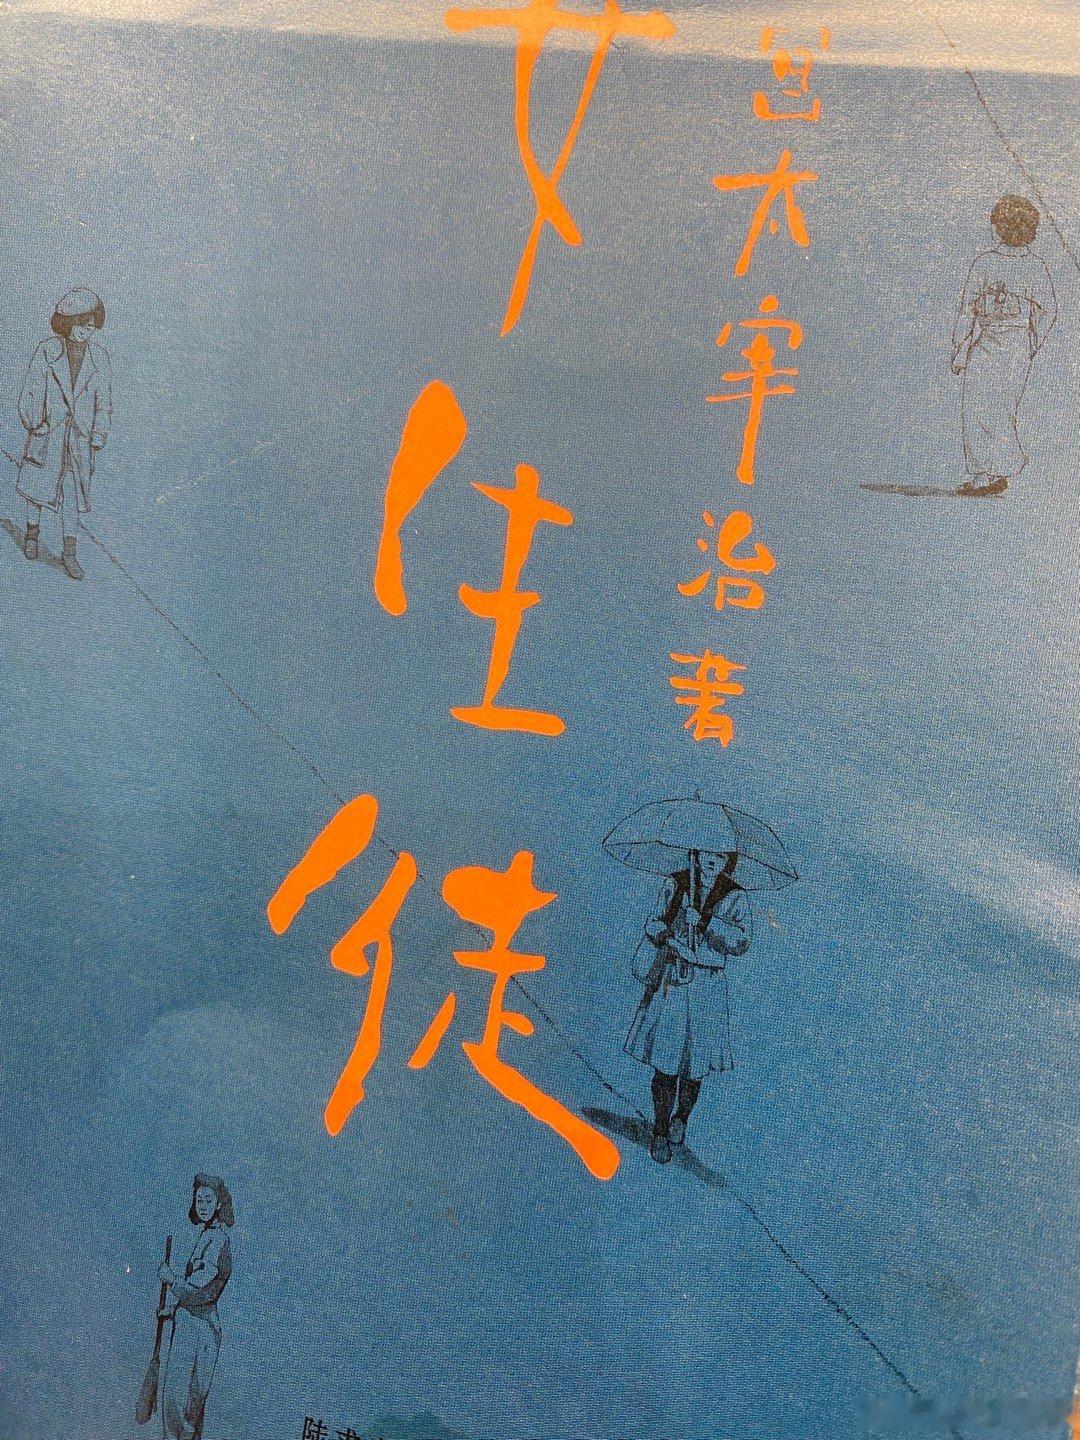 [日]太宰治 著
女生徒
陆求